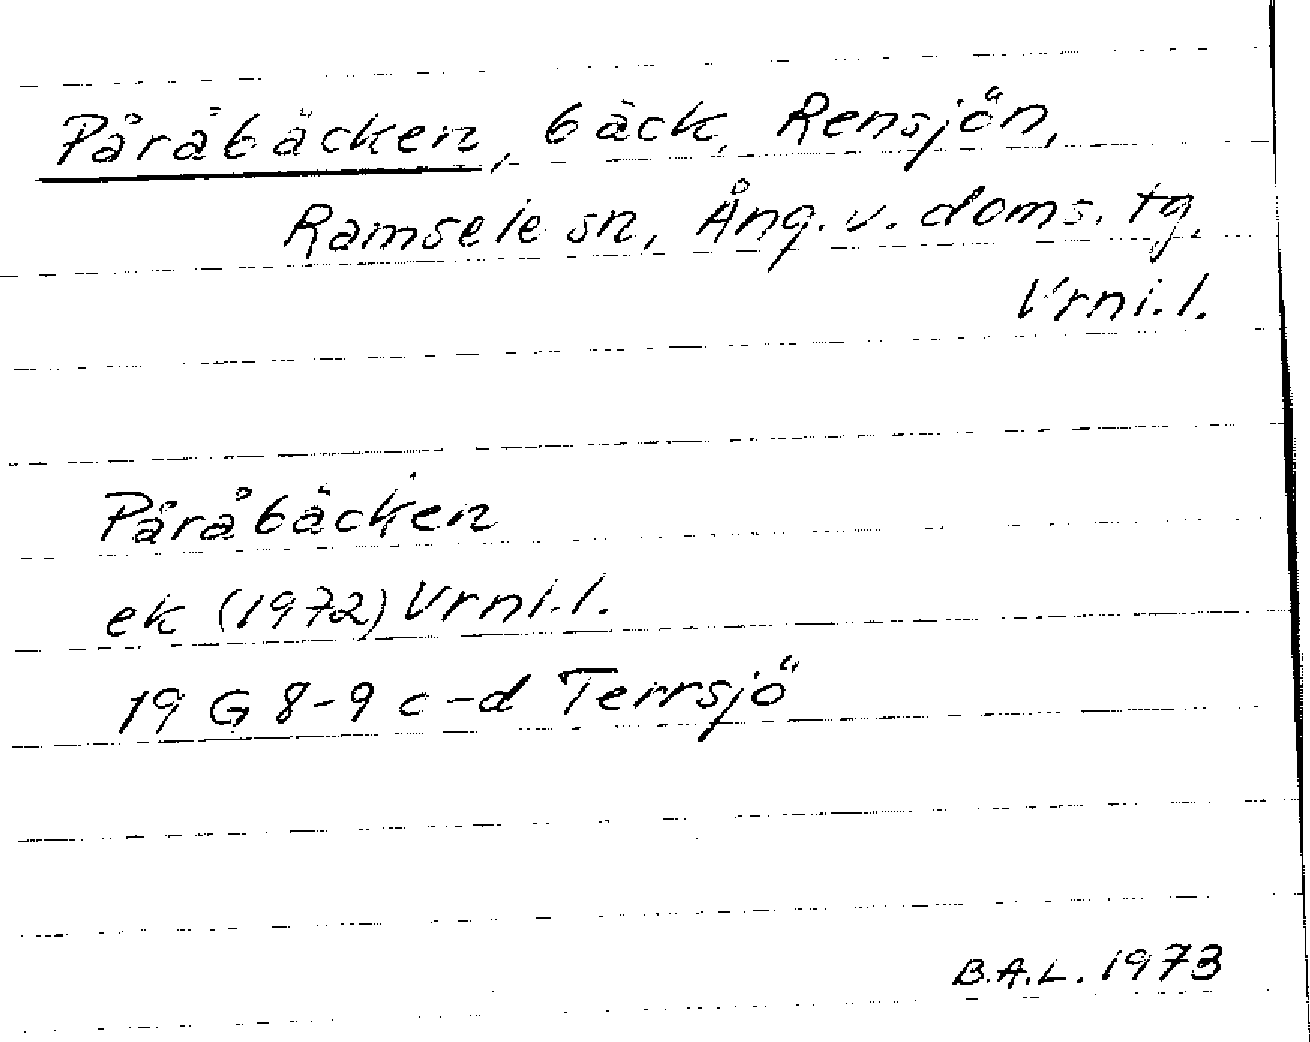 Påråbäcken, bäck, Rensjön,
Ramsele sn, Ång. v. doms. tg,
Vrni. l.
Påråbäcken
ek (1972) Vrni. l.
19 G 8-9 c-d Terrsjö
B.A.L. 1973